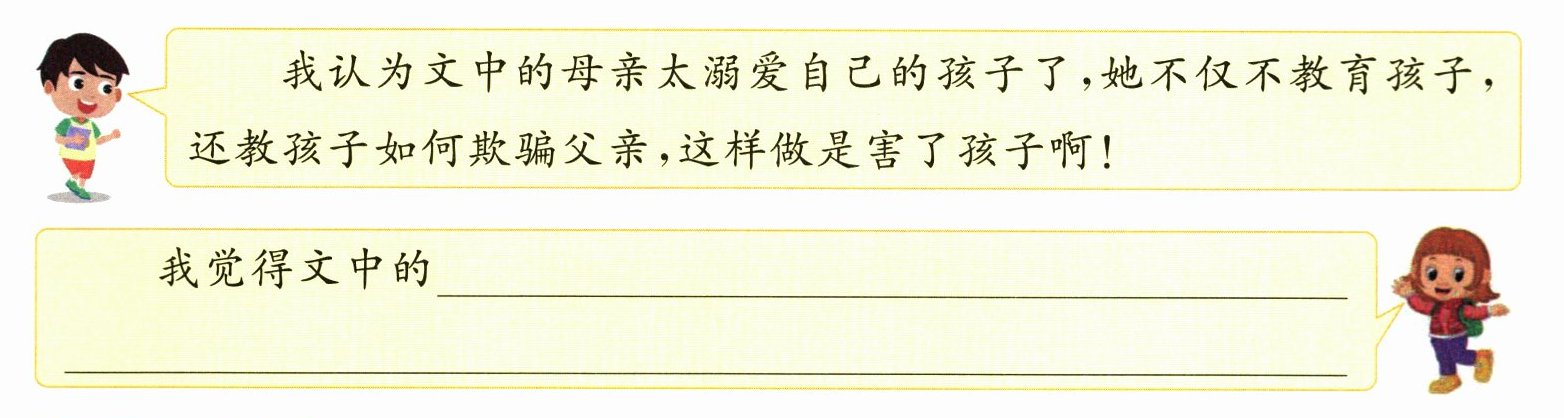 我认为文中的母亲太溺爱自己的孩子了，她不仅不教育孩子，
还教孩子如何欺骗父亲，这样做是害了孩子啊！
我觉得文中的